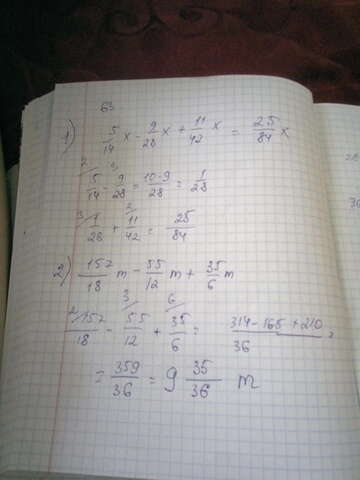 63.
1) 5/14 x - 9/28 x + 11/42 x = 25/84 x
2/ 5/14 - 9/28 = 10-9/28 = 1/28
3/ 1/28 + 2/ 11/42 = 25/84
2) 157/18 m - 55/12 m + 35/6 m
2/ 157/18 - 3/ 55/12 + 6/ 35/6 = 314-165+210/36 =
= 359/36 = 9 35/36 m